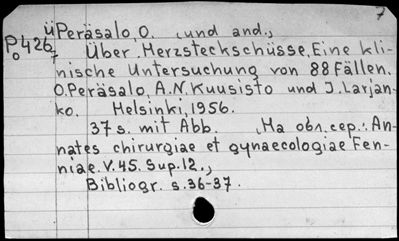 7
üPeräsalo, O. (und and.,
P₀426₇ Über Herzsteckschüsse. Eine kli-
nische Untersuchung von 88 Fällen.
O. Peräsalo, A.N. Kuusisto und J. Larjan-
ko. Helsinki, 1956.
37 s. mit Abb. (На обл. сер.: An-
nates chirurgiae et gynaecologiae Fen-
niae. V. 45. Sup. 12.,
Bibliogr. s. 36-37.